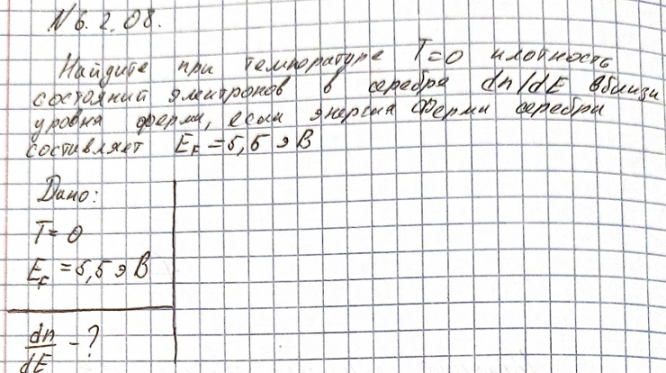 N 6.2.08.
Найдите при температуре T=0 плотность
состояний электронов в серебра dn/dE вблизи
уровна ферми, если энергия Ферми серебри
составляет E_F = 5,5 эВ
Дано:
T = 0
E_F = 5,5 эВ
dn/dE - ?